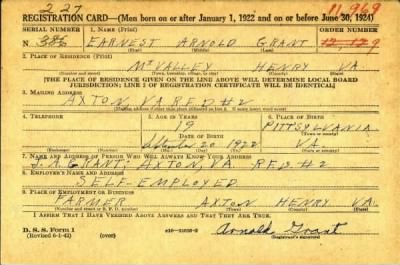 227
11,969
REGISTRATION CARD—(Men born on or after January 1, 1922 and on or before June 30, 1924)
SERIAL NUMBER 1. NAME (Print) ORDER NUMBER
N 386 EARNEST ARNOLD GRANT 12,129
(First) (Middle) (Last)
2. PLACE OF RESIDENCE (Print)
Mt VALLEY HENRY VA
(Number and street) (Town, township, village, or city) (County) (State)
[THE PLACE OF RESIDENCE GIVEN ON THE LINE ABOVE WILL DETERMINE LOCAL BOARD
JURISDICTION; LINE 2 OF REGISTRATION CERTIFICATE WILL BE IDENTICAL]
3. MAILING ADDRESS
AXTON VA RFD #2
4. TELEPHONE 5. AGE IN YEARS 6. PLACE OF BIRTH
19 PITTSYLVANIA
DATE OF BIRTH
September 20 1922 VA.
(Exchange) (Number) (Mo.) (Day) (Yr.) (State or country)
7. NAME AND ADDRESS OF PERSON WHO WILL ALWAYS KNOW YOUR ADDRESS
GRANT, AXTON, VA. RFD #2
8. EMPLOYER'S NAME AND ADDRESS
SELF-EMPLOYED
9. PLACE OF EMPLOYMENT OR BUSINESS
FARMER AXTON HENRY VA.
(Number and street or R. F. D. number) (Town) (County) (State)
I AFFIRM THAT I HAVE VERIFIED ABOVE ANSWERS AND THAT THEY ARE TRUE.
D. S. S. Form 1
(Revised 6-1-42) (over) Arnold Grant
(Registrant's signature)